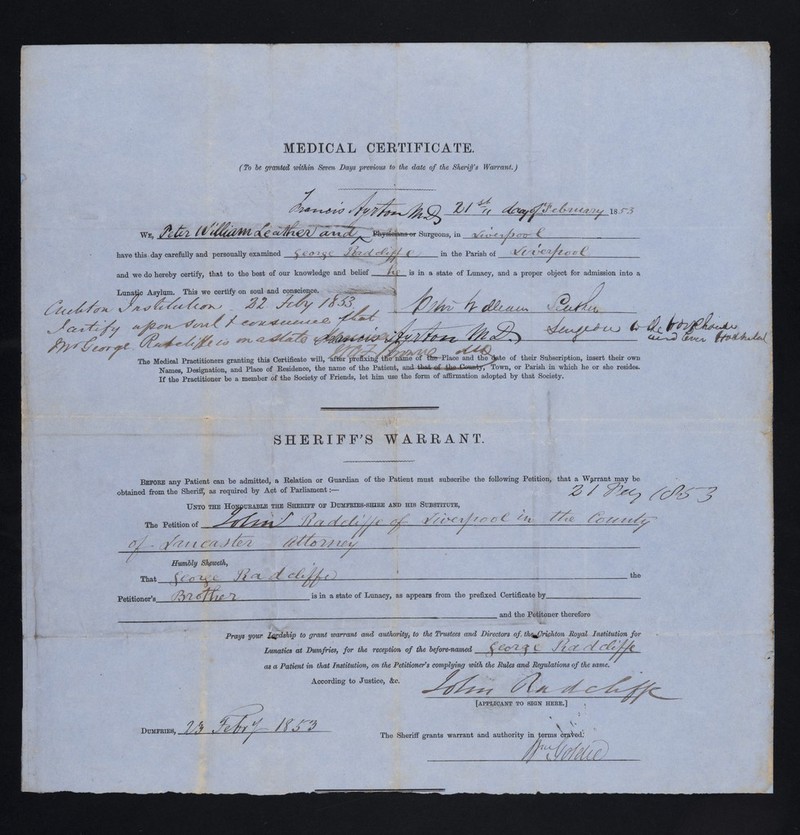 MEDICAL CERTIFICATE.
(To be granted within Seven Days previous to the date of the Sheriff's Warrant.)
Francis Ayrton MD 21st day of February 1853
WE, Peter William Leather and Physicians or Surgeons, in Liverpool
have this day carefully and personally examined George Radcliffe in the Parish of Liverpool
and we do hereby certify, that to the best of our knowledge and belief he is in a state of Lunacy, and a proper object for admission into a
Lunatic Asylum. This we certify on soul and conscience.
Institution 22 Feby 1853
Peter William Leather
I certify upon soul & conscience that
Surgeon to the Workhouse
Mr George Radcliffe is in a state
Francis Ayrton M.D.
and Fever Hospital
The Medical Practitioners granting this Certificate will, after prefixing the name of the Place and the date of their Subscription, insert their own
Names, Designation, and Place of Residence, the name of the Patient, and that of the County, Town, or Parish in which he or she resides.
If the Practitioner be a member of the Society of Friends, let him use the form of affirmation adopted by that Society.
SHERIFF'S WARRANT.
BEFORE any Patient can be admitted, a Relation or Guardian of the Patient must subscribe the following Petition, that a Warrant may be
obtained from the Sheriff, as required by Act of Parliament:—
21 Feby 1853
UNTO THE HONOURABLE THE SHERIFF OF DUMFRIES-SHIRE AND HIS SUBSTITUTE,
The Petition of John Radcliffe of Liverpool in the County
of Lancaster Attorney
Humbly Sheweth,
That George Radcliffe the
Petitioner's Brother is in a state of Lunacy, as appears from the prefixed Certificate by
and the Petitioner therefore
Prays your Lordship to grant warrant and authority, to the Trustees and Directors of the Crichton Royal Institution for
Lunatics at Dumfries, for the reception of the before-named George Radcliffe
as a Patient in that Institution, on the Petitioner's complying with the Rules and Regulations of the same.
According to Justice, &c.
John Radcliffe
[APPLICANT TO SIGN HERE.]
DUMFRIES, 23 Feby 1853
The Sheriff grants warrant and authority in terms craved.
Wm Goldie